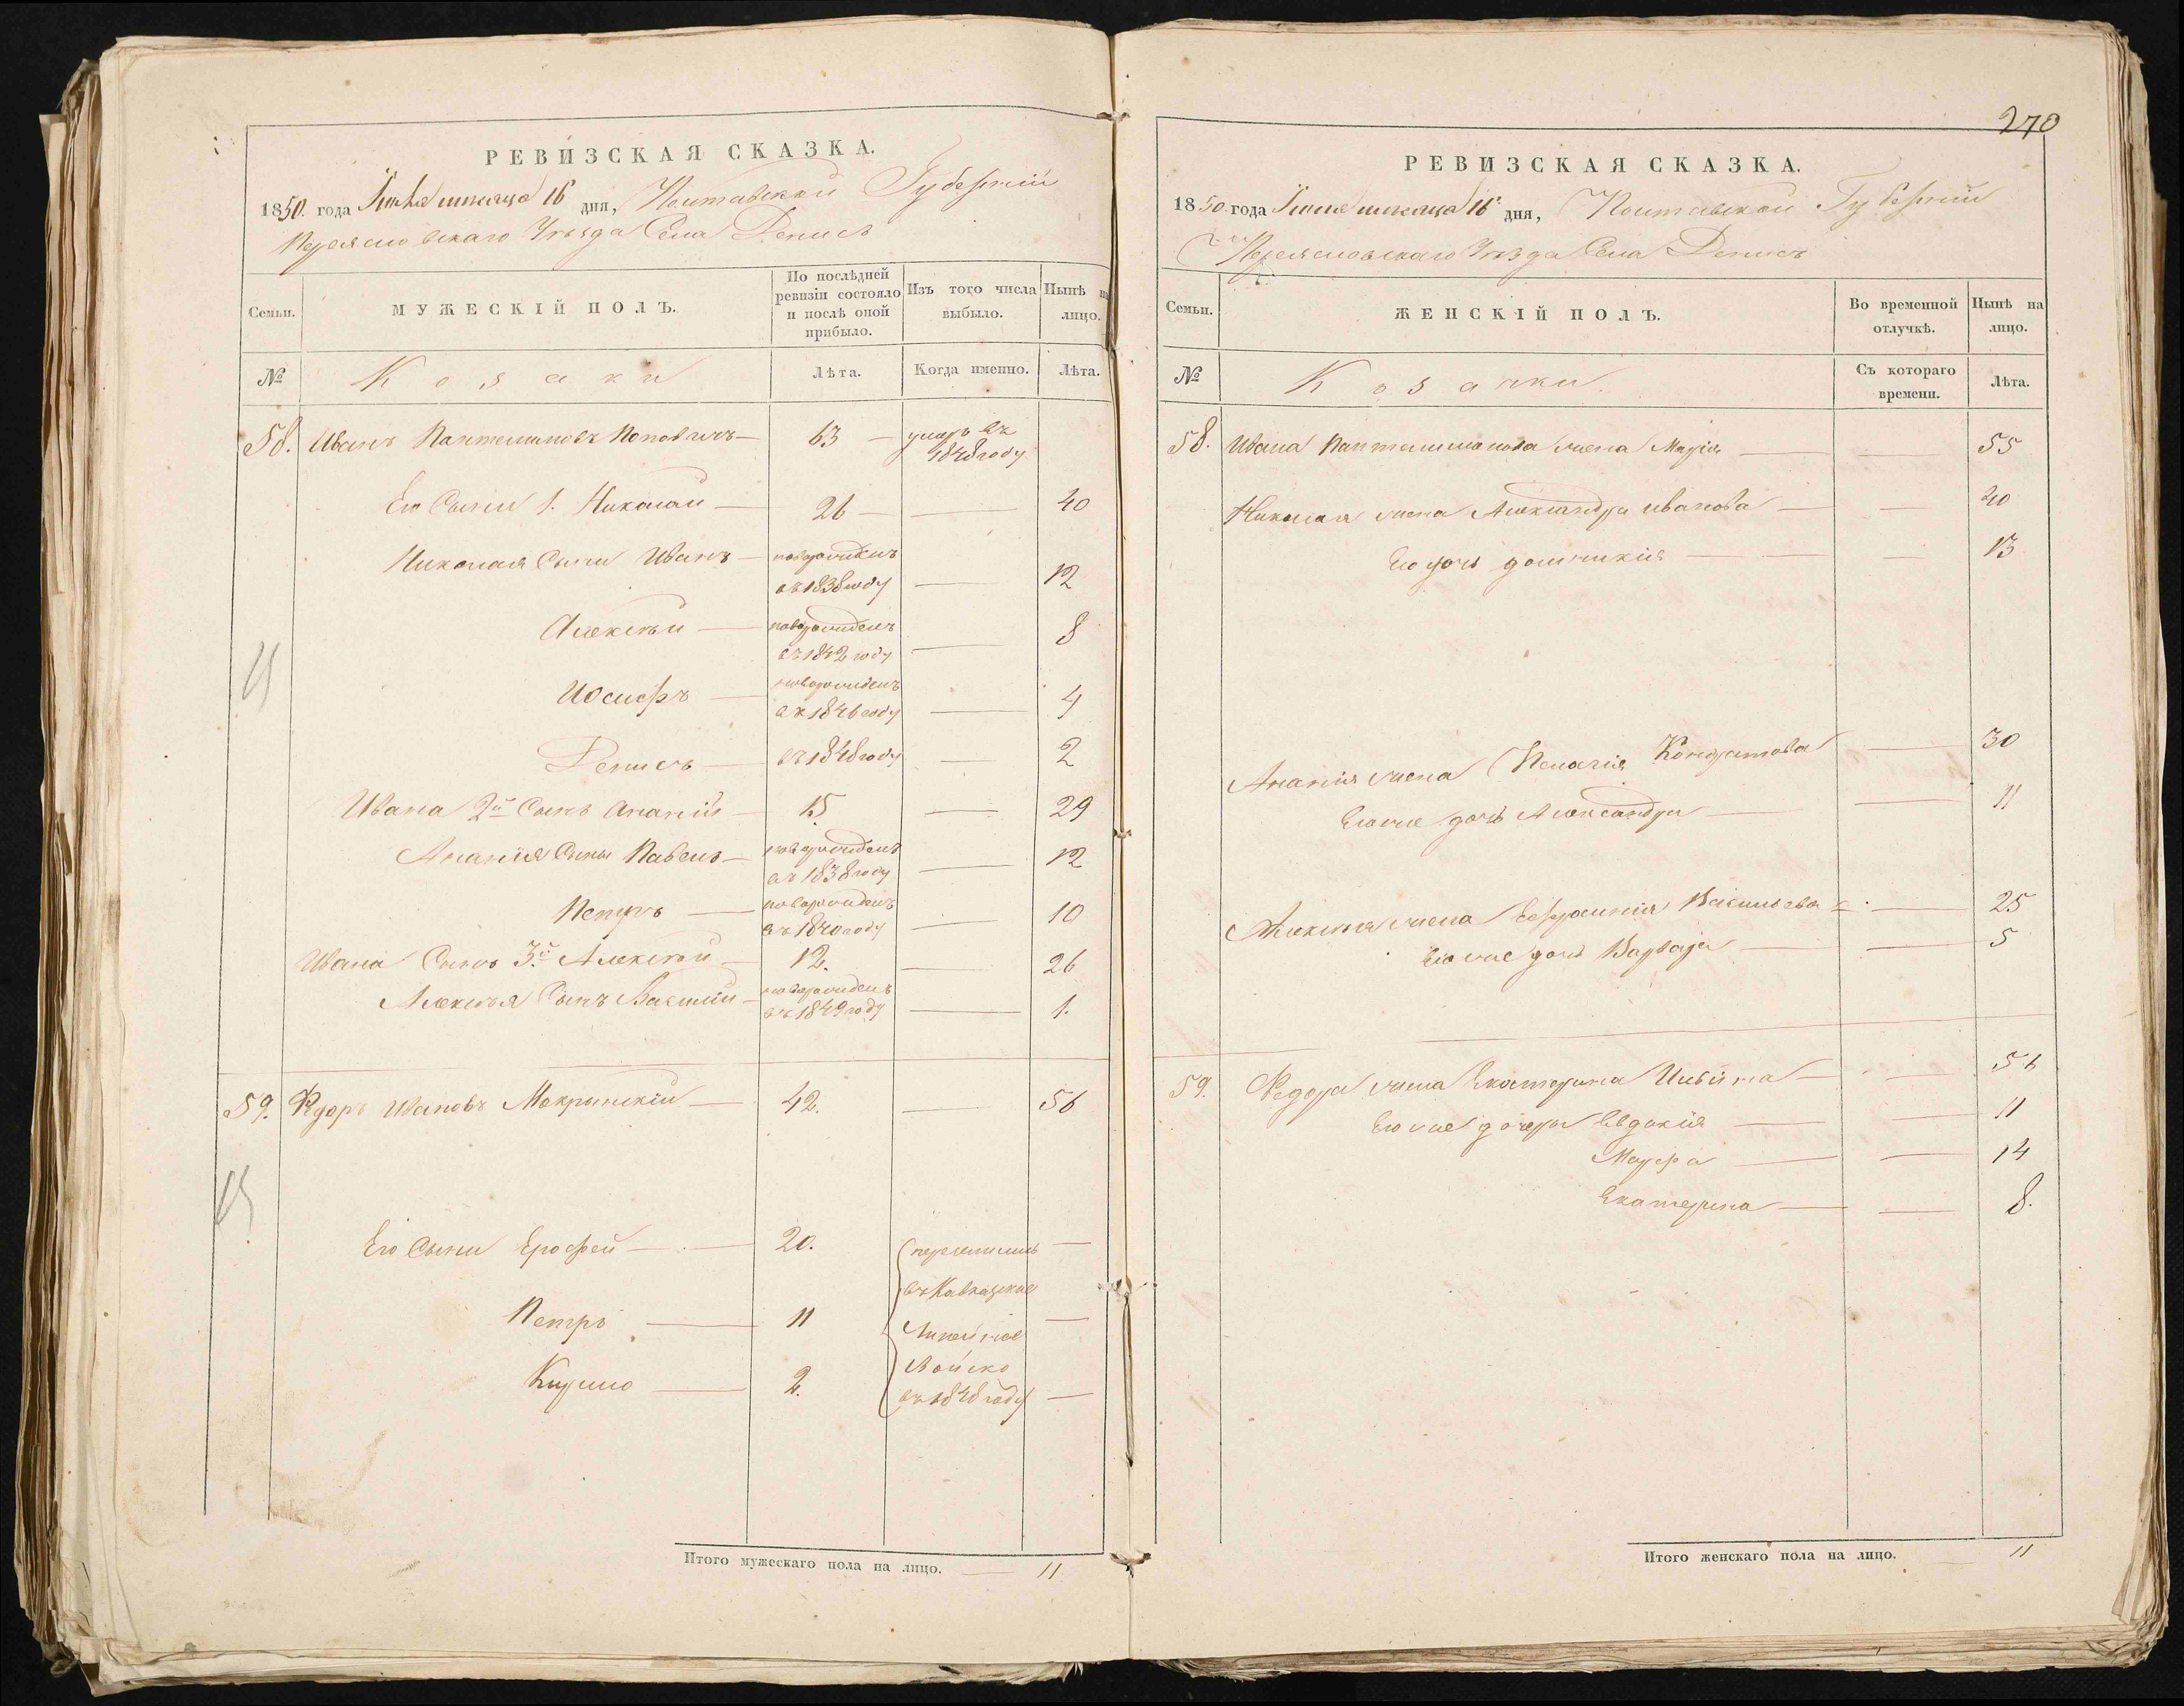 РЕВИЗСКАЯ СКАЗКА.
1850. года Іюня месяца 16 дня, Полтавской Губерніи
Переясловскаго Уезда Села Денисъ
Семьи.
МУЖЕСКІЙ ПОЛЪ.
По послѣдней ревизіи состояло и послѣ оной прибыло.
Изъ того числа выбыло.
Нынѣ на лицо.
№
Козаки
Лѣта.
Когда именно.
Лѣта.
58. Иванъ Пантелимоновъ Поповичъ — 63 — умеръ въ
1848 году
Его Сыни 1. Николай — 26 — 40
Николая Сыни Иванъ — новорожденъ
въ 1838 году — 12
Алексѣй — новорожденъ
въ 1842 году — 8
Иосифъ — новорожденъ
въ 1846 году — 4
Денисъ — въ 1848 году — 2
Ивана 2й Сынъ Ананій — 15 — 29
Ананія Сыны Павелъ — новорожденъ
въ 1838 году — 12
Петръ — новорожденъ
въ 1840 году — 10
Ивана Сынъ 3й Алексѣй — 12. — 26
Алексѣя Сынъ Василій — новорожденъ
въ 1849 году — 1.
59. Федоръ Ивановъ Мокринскій — 42. — 56
Его Сыни Ерофей — 20. —
Петръ — 11 —
Кирило — 2. —
переселились
въ Кавказское
Линейное
Войско
въ 1848 году
Итого мужескаго пола на лицо. — 11
270
РЕВИЗСКАЯ СКАЗКА.
1850. года Іюня месяца 16 дня, Полтавской Губерніи
Переясловскаго Уезда Села Денисъ
Семьи.
ЖЕНСКІЙ ПОЛЪ.
Во временной отлучкѣ.
Нынѣ на лицо.
№
Козачки.
Съ котораго времени.
Лѣта.
58. Ивана Пантелимонова жена Марія — 55
Николая жена Александра Иванова — 40
Его дочь Домникія — 13
Ананія жена Пелагія Кондратова — 30
Его же дочь Александра — 11
Алексѣя жена Ефросинія Васильева — 25
Его же дочь Варвара — 5
59. Федора жена Екатерина Ильина — 56
Его же дочери Евдокія — 11
Марфа — 14
Екатерина — 8.
Итого женскаго пола на лицо. — 11